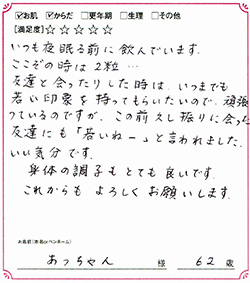 ☑お肌 ☑からだ □更年期 □生理 □その他
[満足度]☆☆☆☆☆
いつも夜眠る前に飲んでいます。
ここぞの時は2粒…
友達と会ったりした時は、いつまでも
若い印象を持ってもらいたいので、頑張
っているのですが、この前久し振りに会った
友達にも「若いねー」と言われました。
いい気分です。
身体の調子もとても良いです。
これからもよろしくお願いします。
お名前(本名orペンネーム)
あっちゃん 様 62歳